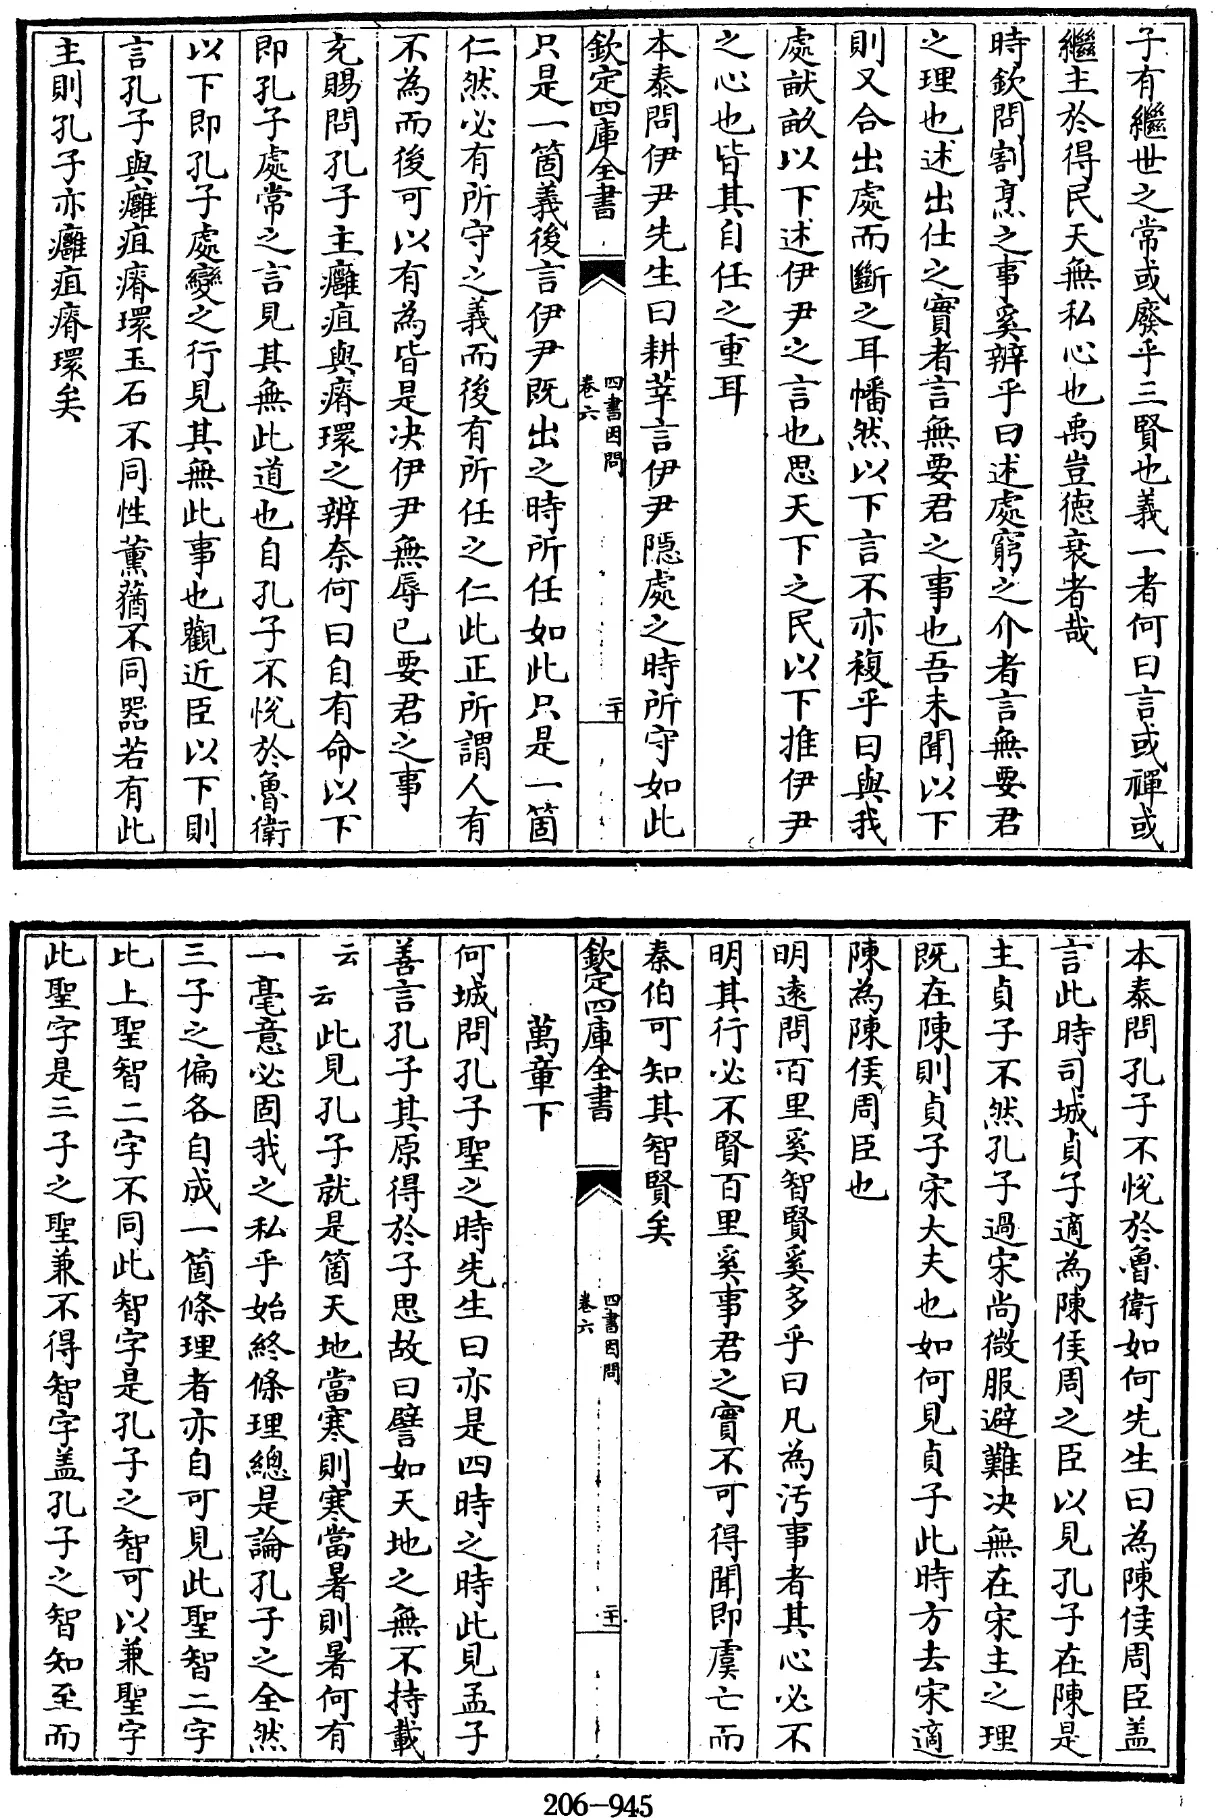 子有繼世之常或廢乎三賢也義一者何曰言或禪或
繼主於得民天無私心也禹豈德衰者哉
時欽問割烹之事奚辨乎曰述處窮之介者言無要君
之理也述出仕之實者言無要君之事也吾未聞以下
則又合出處而斷之耳幡然以下言不亦複乎曰與我
處畎畝以下述伊尹之言也思天下之民以下推伊尹
之心也皆其自任之重耳
本泰問伊尹先生曰耕莘言伊尹隱處之時所守如此
欽定四庫全書
四書因問
卷六
二十
只是一箇義後言伊尹既出之時所任如此只是一箇
仁然必有所守之義而後有所任之仁此正所謂人有
不為而後可以有為皆是决伊尹無辱已要君之事
充賜問孔子主癰疽與瘠環之辨奈何曰自有命以下
即孔子處常之言見其無此道也自孔子不悅於魯衛
以下即孔子處變之行見其無此事也觀近臣以下則
言孔子與癰疽瘠環玉石不同性薰蕕不同器若有此
主則孔子亦癰疽瘠環矣
本泰問孔子不悅於魯衛如何先生曰為陳侯周臣盖
言此時司城貞子適為陳侯周之臣以見孔子在陳是
主貞子不然孔子過宋尚微服避難决無在宋主之理
既在陳則貞子宋大夫也如何見貞子此時方去宋適
陳為陳侯周臣也
明逺問百里奚智賢奚多乎曰凡為汚事者其心必不
明其行必不賢百里奚事君之實不可得聞即虞亡而
秦伯可知其智賢矣
欽定四庫全書
四書因問
卷六
二十一
萬章下
何城問孔子聖之時先生曰亦是四時之時此見孟子
善言孔子其原得於子思故曰譬如天地之無不持載
云云此見孔子就是箇天地當寒則寒當暑則暑何有
一毫意必固我之私乎始終條理總是論孔子之全然
三子之偏各自成一箇條理者亦自可見此聖智二字
比上聖智二字不同此智字是孔子之智可以兼聖字
此聖字是三子之聖兼不得智字盖孔子之智知至而
206-945